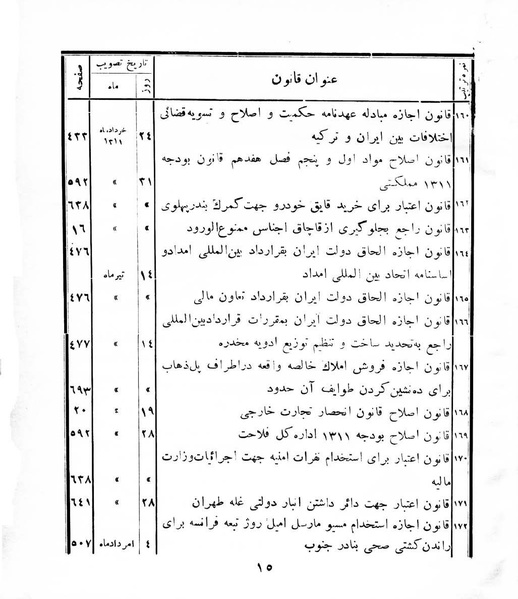 نمره ترتیب | عنوان قانون | تاریخ تصویب | صفحه
روز | ماه
۱۶۰ قانون اجازه مبادله عهدنامه حکمیت و اصلاح و تسویه قضائی
اختلافات بین ایران و ترکیه | ۲٤ | خردادماه ۱۳۱۱ | ٤۳۳
۱۶۱ قانون اصلاح مواد اول و پنجم فصل هفدهم قانون بودجه
۱۳۱۱ مملکتی | ۳۱ | » | ۵۹۲
۱۶۲ قانون اعتبار برای خرید قایق خودرو جهت گمرك بندر پهلوی | » | » | ۶۳۸
۱۶۳ قانون راجع بجلوگیری از قاچاق اجناس ممنوع‌الورود | » | » | ۱۶
۱۶٤ قانون اجازه الحاق دولت ایران بقرارداد بین‌المللی امداد و | ٤۷۶
اساسنامه اتحاد بین المللی امداد | ۱٤ | تیرماه
۱۶۵ قانون اجازه الحاق دولت ایران بقرارداد تعاون مالی | » | » | ٤۷۶
۱۶۶ قانون اجازه الحاق دولت ایران بمقررات قرارداد بین‌المللی
راجع به‌تحدید ساخت و تنظیم توزیع ادویه مخدره | ۱٤ | » | ٤۷۷
۱۶۷ قانون اجازه فروش املاك خالصه واقعه در اطراف پل‌ذهاب
برای ده‌نشین کردن طوایف آن حدود | » | » | ۶۹۳
۱۶۸ قانون اصلاح قانون انحصار تجارت خارجی | ۱۹ | » | ۲۰
۱۶۹ قانون اصلاح بودجه ۱۳۱۱ اداره کل فلاحت | ۲۸ | » | ۵۹۲
۱۷۰ قانون اعتبار برای استخدام نفرات امنیه جهت اجرائیات وزارت
مالیه | » | » | ۶۳۸
۱۷۱ قانون اعتبار جهت دائر داشتن انبار دولتی غله طهران | ۲۸ | » | ۶٤۱
۱۷۲ قانون اجازه استخدام مسیو مارسل امیل روژ تبعه فرانسه برای
راندن کشتی صحی بنادر جنوب | ٤ | امردادماه | ۵۰۷
۱۵